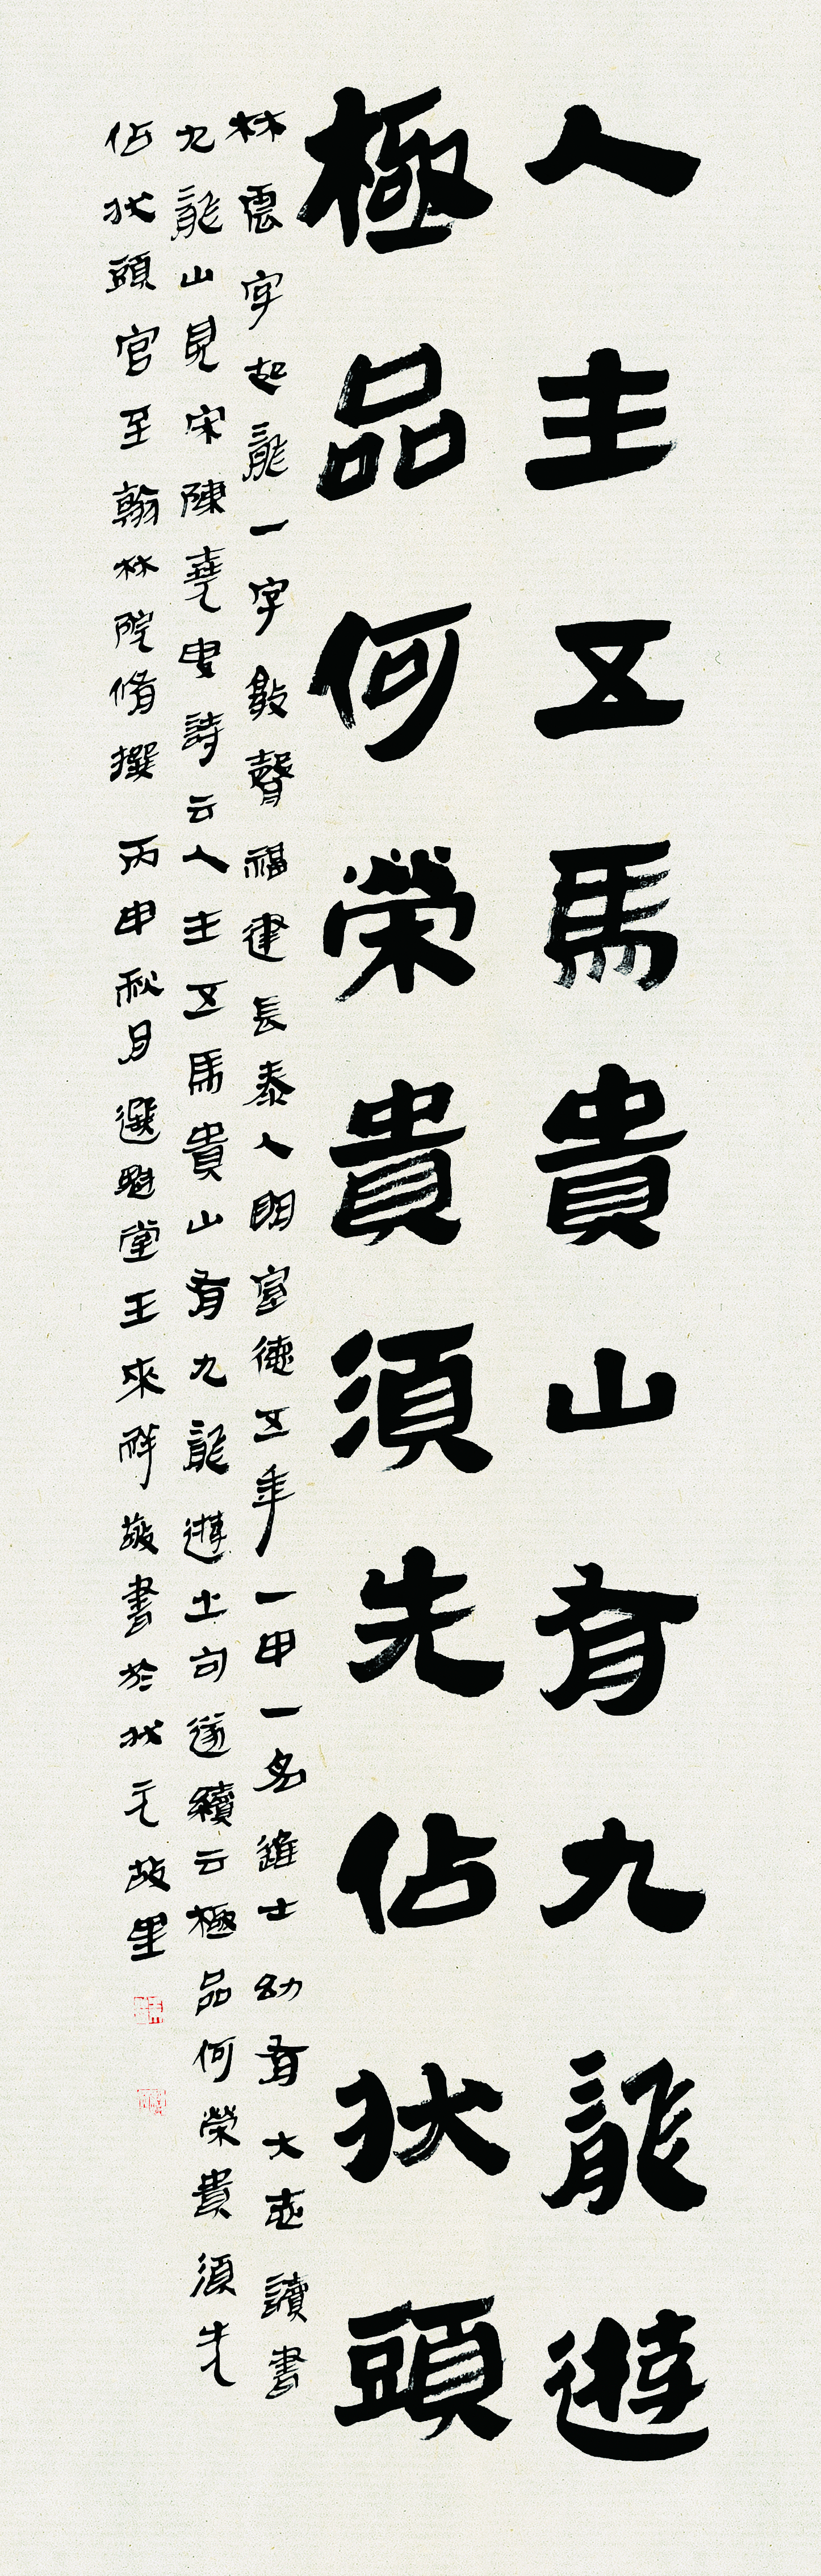 人主五馬貴山有九龍遊
極品何榮貴須先佔狀頭
林震字起龍一字敦聲福建長泰人明宣德五年一甲一名進士幼有大志讀書
九龍山見宋陳堯叟詩云人主五馬貴山有九龍遊土句遂續云極品何榮貴須先
佔狀頭官至翰林院脩撰 丙申秋月選魁堂王來祥敬書於狀元故里